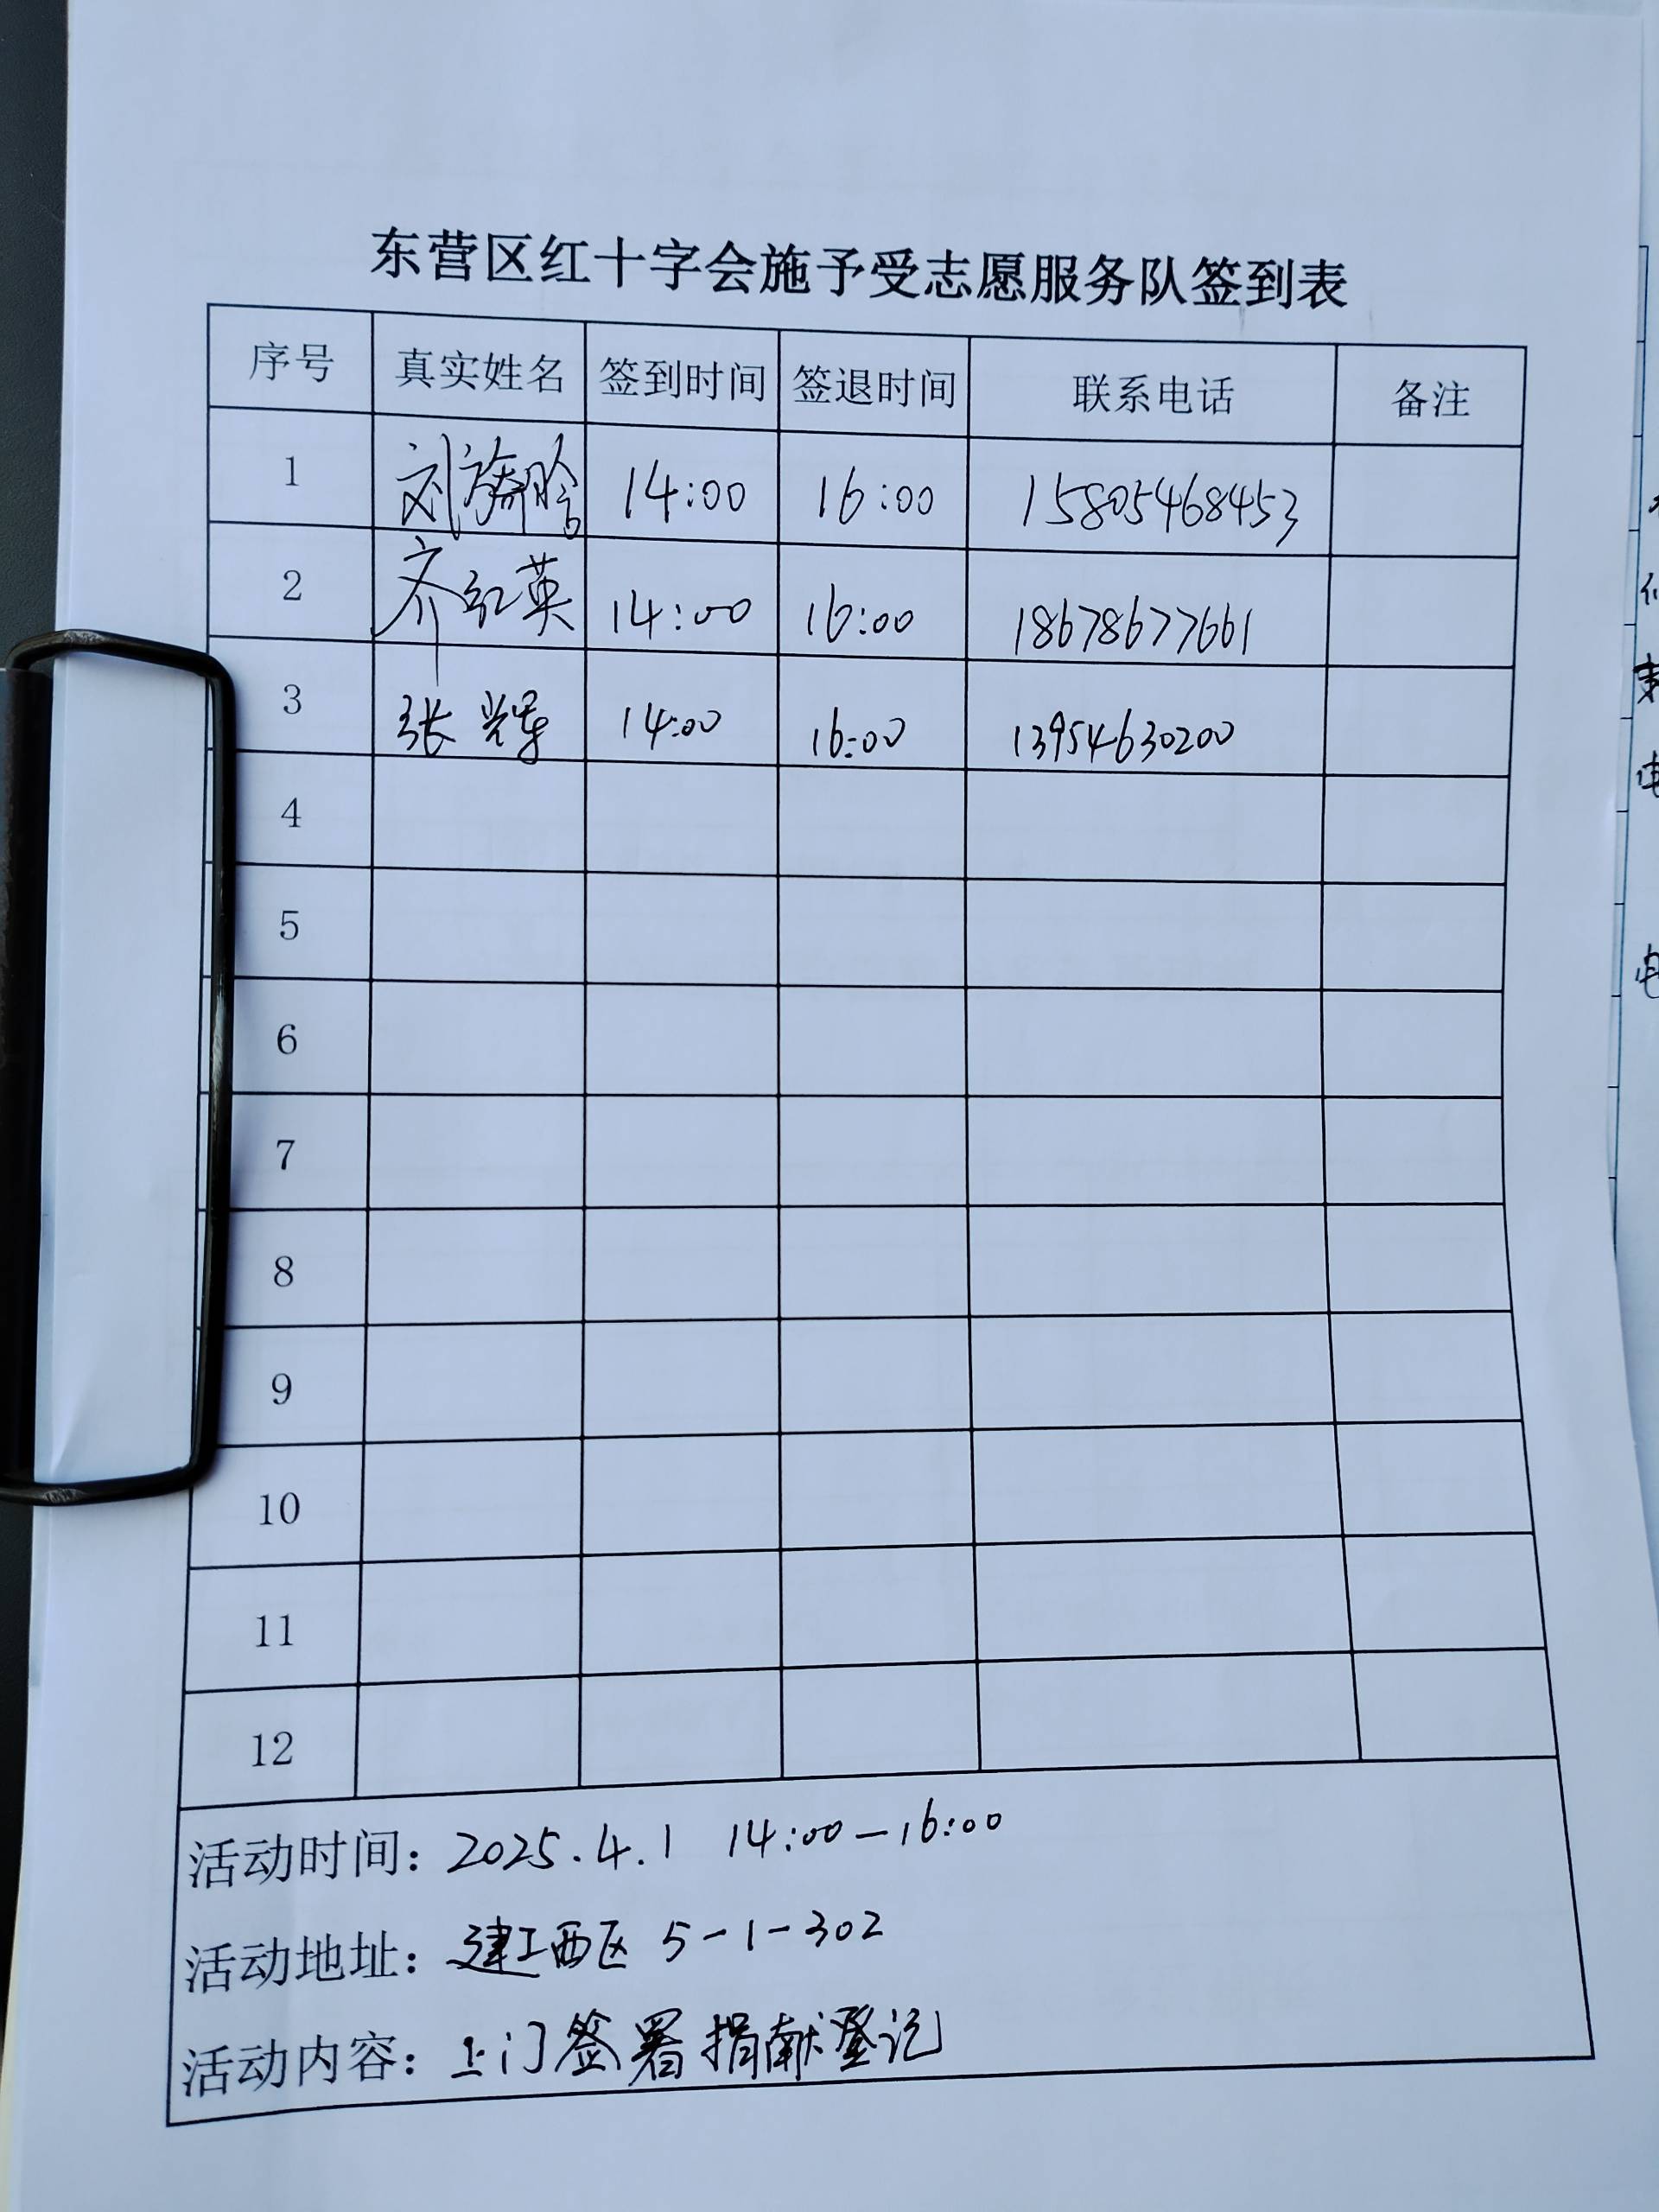 东营区红十字会施予受志愿服务队签到表
序号 真实姓名 签到时间 签退时间 联系电话 备注
1 刘 14:00 16:00 15805468453
2 齐红英 14:00 16:00 18678677661
3 张辉 14:00 16:00 13954630200
4
5
6
7
8
9
10
11
12
活动时间：2025.4.1 14:00—16:00
活动地址：建工西区 5-1-302
活动内容：上门签署捐献登记